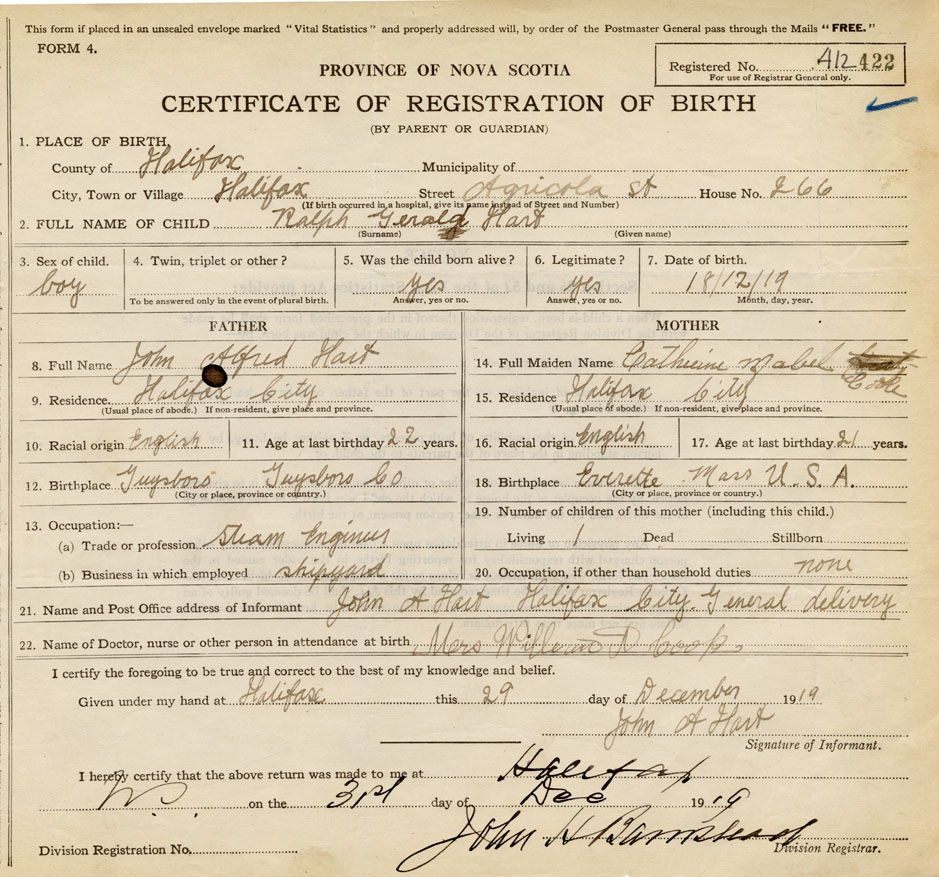 This form if placed in an unsealed envelope marked "Vital Statistics" and properly addressed will, by order of the Postmaster General pass through the Mails "FREE."
FORM 4.
Registered No. 412 422
For use of Registrar General only.
PROVINCE OF NOVA SCOTIA
CERTIFICATE OF REGISTRATION OF BIRTH
(BY PARENT OR GUARDIAN)
1. PLACE OF BIRTH,
County of Halifax Municipality of
City, Town or Village Halifax Street Agricola St House No. 266
(If birth occurred in a hospital, give its name instead of Street and Number)
2. FULL NAME OF CHILD Ralph Gerald Hart
(Surname) (Given name)
3. Sex of child. 4. Twin, triplet or other? 5. Was the child born alive? 6. Legitimate? 7. Date of birth.
boy yes yes 18/12/19
To be answered only in the event of plural birth. Answer, yes or no. Answer, yes or no. Month, day, year.
FATHER MOTHER
8. Full Name John Alfred Hart 14. Full Maiden Name Catherine Mabel Cooke
9. Residence. Halifax City 15. Residence Halifax City
(Usual place of abode.) If non-resident, give place and province. (Usual place of abode.) If non-resident, give place and province.
10. Racial origin English 11. Age at last birthday 22 years. 16. Racial origin English 17. Age at last birthday 21 years.
12. Birthplace Guysboro Guysboro Co 18. Birthplace Everette Mass U. S. A.
(City or place, province or country.) (City or place, province or country.)
13. Occupation:— 19. Number of children of this mother (including this child.)
(a) Trade or profession Steam Engineer Living 1 Dead Stillborn
(b) Business in which employed shipyard 20. Occupation, if other than household duties none
21. Name and Post Office address of Informant John A Hart Halifax City General delivery
22. Name of Doctor, nurse or other person in attendance at birth Mrs
I certify the foregoing to be true and correct to the best of my knowledge and belief.
Given under my hand at Halifax this 29 day of December 1919
John A Hart
Signature of Informant.
I hereby certify that the above return was made to me at Halifax
on the 31st day of Dec 1919
John H
Division Registration No. Division Registrar.